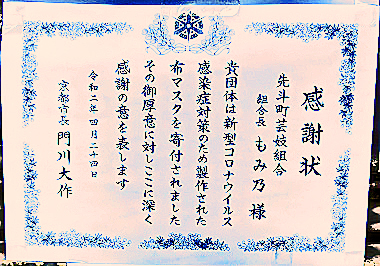 感謝状
先斗町芸妓組合
組合長 もみ乃 様
貴団体は新型コロナウイルス
感染症対策のため製作された
布マスクを寄付されました
その御厚意に対しここに深く
感謝の意を表します
令和二年四月二十四日
京都市長 門川大作